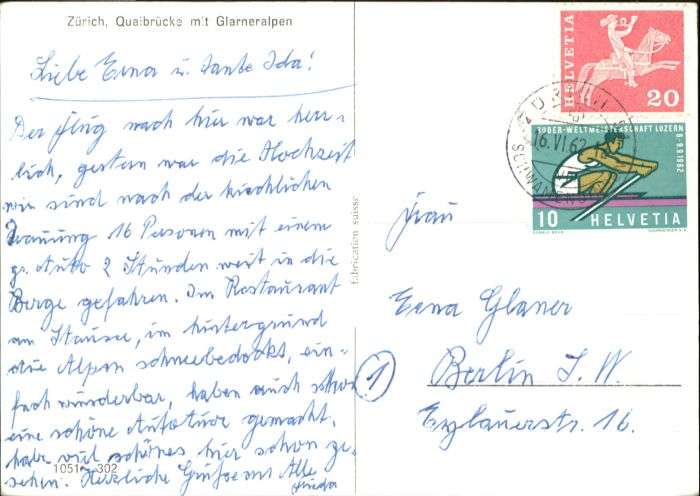 Zürich, Quaibrücke mit Glarneralpen
Liebe Erna u. Tante Ida!
Der Flug nach hier war herr-
lich, gestern war die Hochzeit
wir sind nach der kirchlichen
Trauung 16 Personen mit einem
gr. Auto 2 Stunden weit in die
Berge gefahren. Im Restaurant
am Stausee, im hintergrund
die Alpen schneebedeckt, ein-
fach wunderbar, haben auch schon
eine schöne Autotour gemacht,
habe viel schönes hier schon ge-
sehen. Herzliche Grüße an Alle
Frieda
1051 - 302
fabrication suisse
HELVETIA
20
RUDER-WELTMEISTERSCHAFT LUZERN
6.-9.9.1962
10 HELVETIA
16.VI.62
Frau
Erna Glaner
1 Berlin S.W.
Eylauerstr. 16.